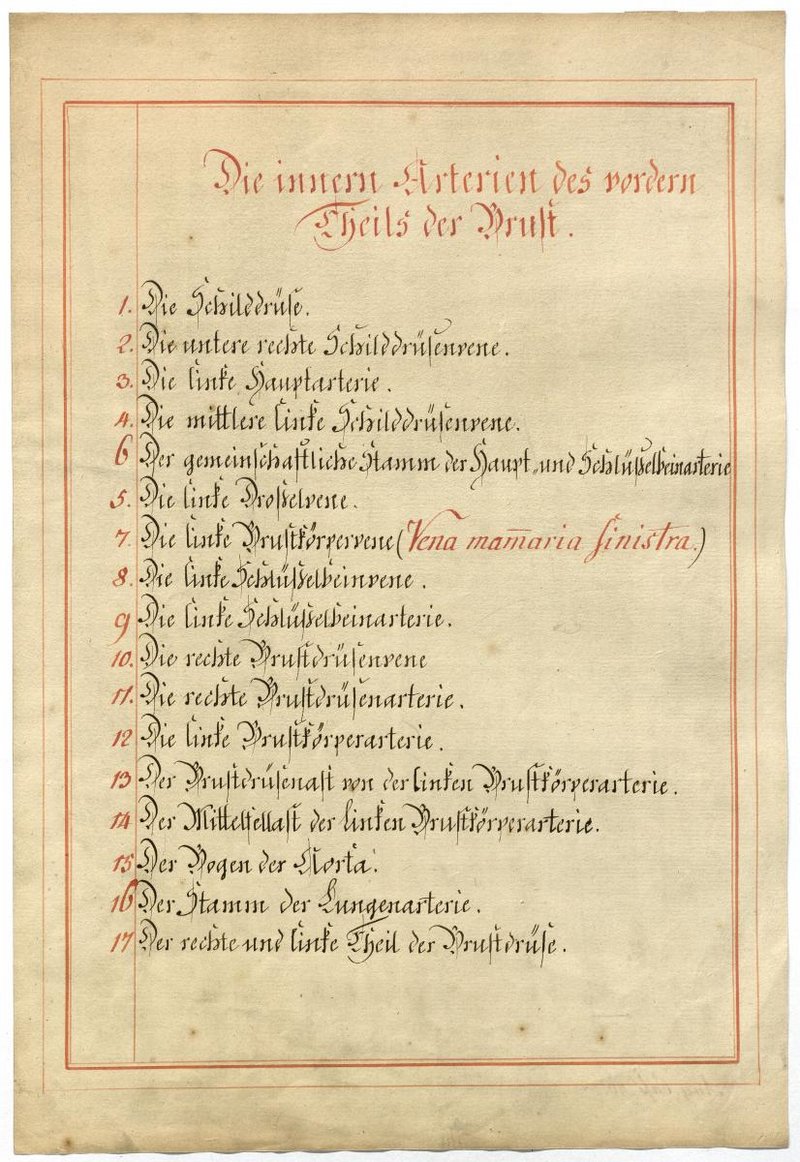 Die innern Arterien des vordern
Theils der Brust.
1. Die Schilddrüse.
2. Die untere rechte Schilddrüsenvene.
3. Die linke Hauptarterie.
4. Die mittlere linke Schilddrüsenvene.
6 Der gemeinschaftliche Stamm der Haupt und Schlüßelbeinarterie
5. Die linke Droßelvene.
7. Die linke Brustkörpervene (Vena mam̅aria sinistra.)
8. Die linke Schlüßelbeinvene.
9 Die linke Schlüßelbeinarterie.
10. Die rechte Brustdrüsenvene
11. Die rechte Brustdrüsenarterie.
12 Die linke Brustkörperarterie.
13 Der Brustdrüsenast von der linken Brustkörperarterie.
14 Der Mittelfellast der linken Brustkörperarterie.
15 Der Bogen der Aorta.
16 Der Stamm der Lungenarterie.
17 Der rechte und linke Theil der Brustdrüse.